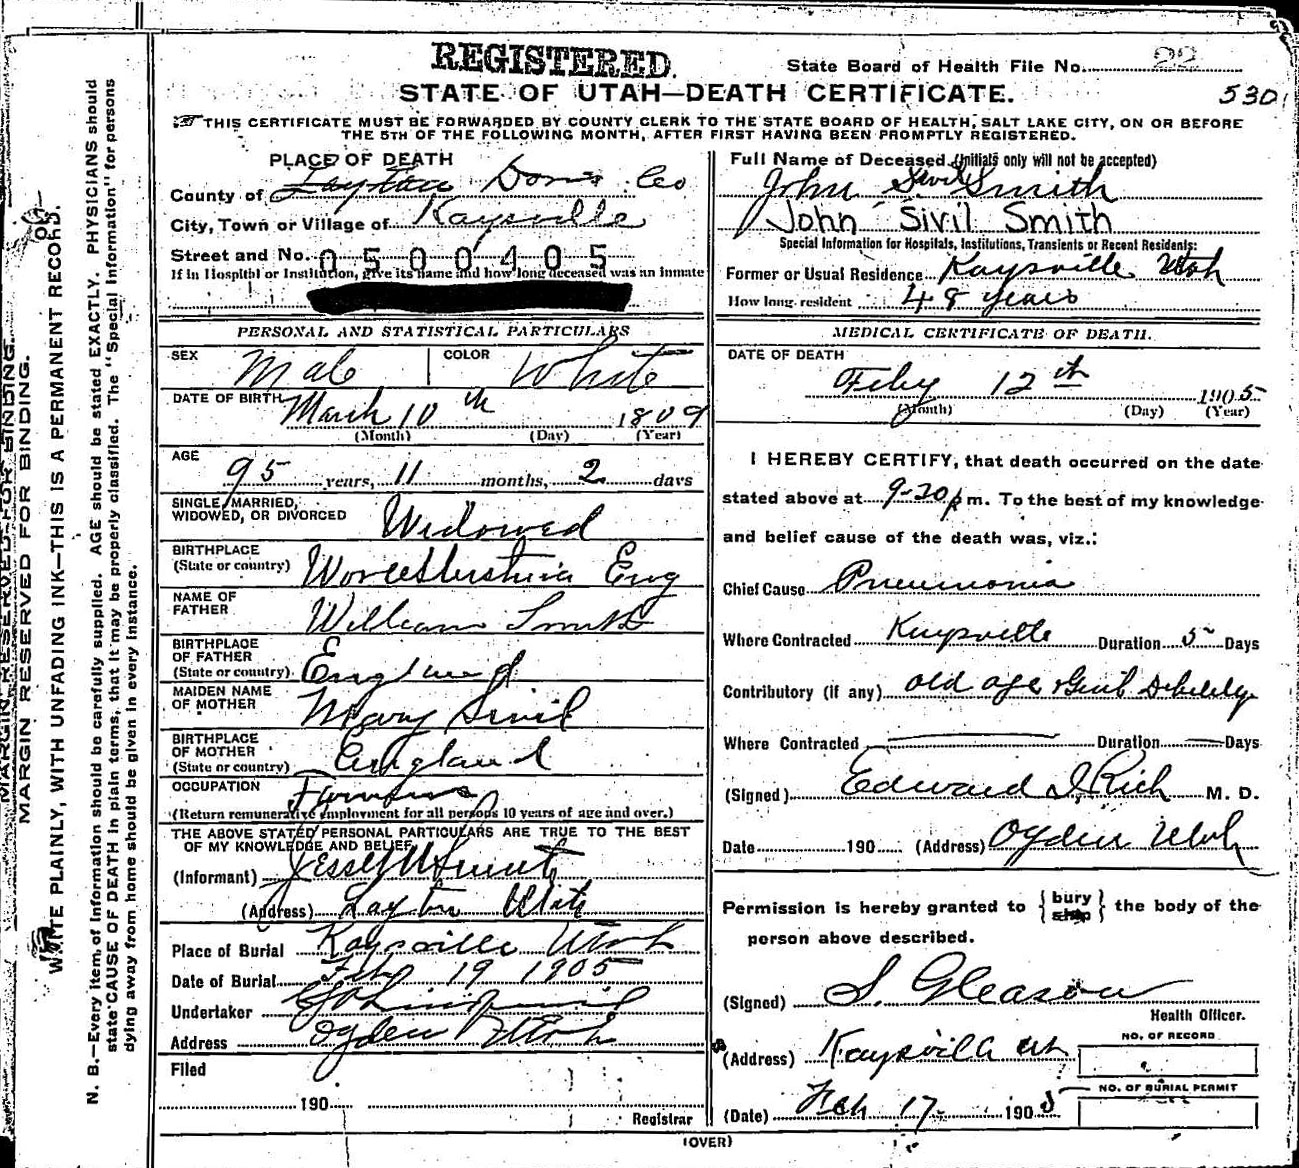 REGISTERED.
State Board of Health File No. 22
530
STATE OF UTAH—DEATH CERTIFICATE.
THIS CERTIFICATE MUST BE FORWARDED BY COUNTY CLERK TO THE STATE BOARD OF HEALTH, SALT LAKE CITY, ON OR BEFORE
THE 5TH OF THE FOLLOWING MONTH, AFTER FIRST HAVING BEEN PROMPTLY REGISTERED.
PLACE OF DEATH
County of Layton Davis Co
City, Town or Village of Kaysville
Street and No. 0500405
If in Hospital or Institution, give its name and how long deceased was an inmate
Full Name of Deceased (Initials only will not be accepted)
John Sivil Smith
John Sivil Smith
Special Information for Hospitals, Institutions, Transients or Recent Residents:
Former or Usual Residence Kaysville Utah
How long resident 48 years
PERSONAL AND STATISTICAL PARTICULARS
SEX Male COLOR White
DATE OF BIRTH March 10th 1809
(Month) (Day) (Year)
AGE 95 years, 11 months, 2 days
SINGLE, MARRIED,
WIDOWED, OR DIVORCED Widowed
BIRTHPLACE
(State or country) Worcestershire Eng
NAME OF
FATHER William Smith
BIRTHPLACE
OF FATHER
(State or country) England
MAIDEN NAME
OF MOTHER Mary Sivil
BIRTHPLACE
OF MOTHER
(State or country) England
OCCUPATION
(Return remunerative employment for all persons 10 years of age and over.)
THE ABOVE STATED PERSONAL PARTICULARS ARE TRUE TO THE BEST
OF MY KNOWLEDGE AND BELIEF
(Informant) Jesse M Smith
(Address) Layton Utah
Place of Burial Kaysville Utah
Date of Burial Feb 19 1905
Undertaker
Address Ogden Utah
Filed
190
Registrar
MEDICAL CERTIFICATE OF DEATH.
DATE OF DEATH
Feby 12th 1905
(Month) (Day) (Year)
I HEREBY CERTIFY, that death occurred on the date
stated above at 9-20 p m. To the best of my knowledge
and belief cause of the death was, viz.:
Chief Cause Pneumonia
Where Contracted Kaysville Duration 5 Days
Contributory (if any) old age Genl Debility
Where Contracted — Duration — Days
(Signed) Edward I. Rich M. D.
Date 190 (Address) Ogden Utah
Permission is hereby granted to { bury ship } the body of the
person above described.
(Signed) S. Gleason
Health Officer.
(Address) Kaysville Ut
NO. OF RECORD
NO. OF BURIAL PERMIT
(Date) Feb 17 1905
(OVER)
MARGIN RESERVED FOR BINDING.
MARGIN RESERVED FOR BINDING.
WRITE PLAINLY, WITH UNFADING INK—THIS IS A PERMANENT RECORD.
N. B.—Every item of Information should be carefully supplied. AGE should be stated EXACTLY. PHYSICIANS should
state CAUSE OF DEATH in plain terms, that it may be properly classified. The "Special Information" for persons
dying away from home should be given in every instance.